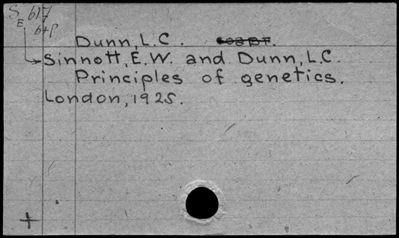 S 617
E 6+P
Dunn, L.C.
Sinnott, E.W. and Dunn, L.C.
Principles of genetics.
London, 1925.
+